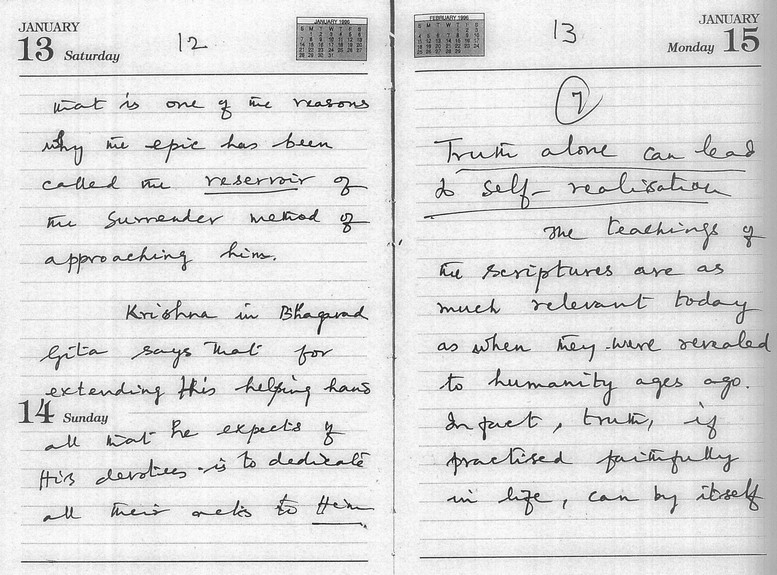 JANUARY
13 Saturday
12
JANUARY 1996
that is one of the reasons
why the epic has been
called the reservoir of
the Surrender method of
approaching him.
Krishna in Bhagavad
Gita says that for
extending this helping hand
14 Sunday
all that he expects of
His devotees is to dedicate
all their acts to Him.
FEBRUARY 1996
13
JANUARY
Monday 15
7
Truth alone can lead
to self-realisation
The teachings of
the scriptures are as
much relevant today
as when they were revealed
to humanity ages ago.
In fact, truth, if
practised faithfully
in life, can by itself